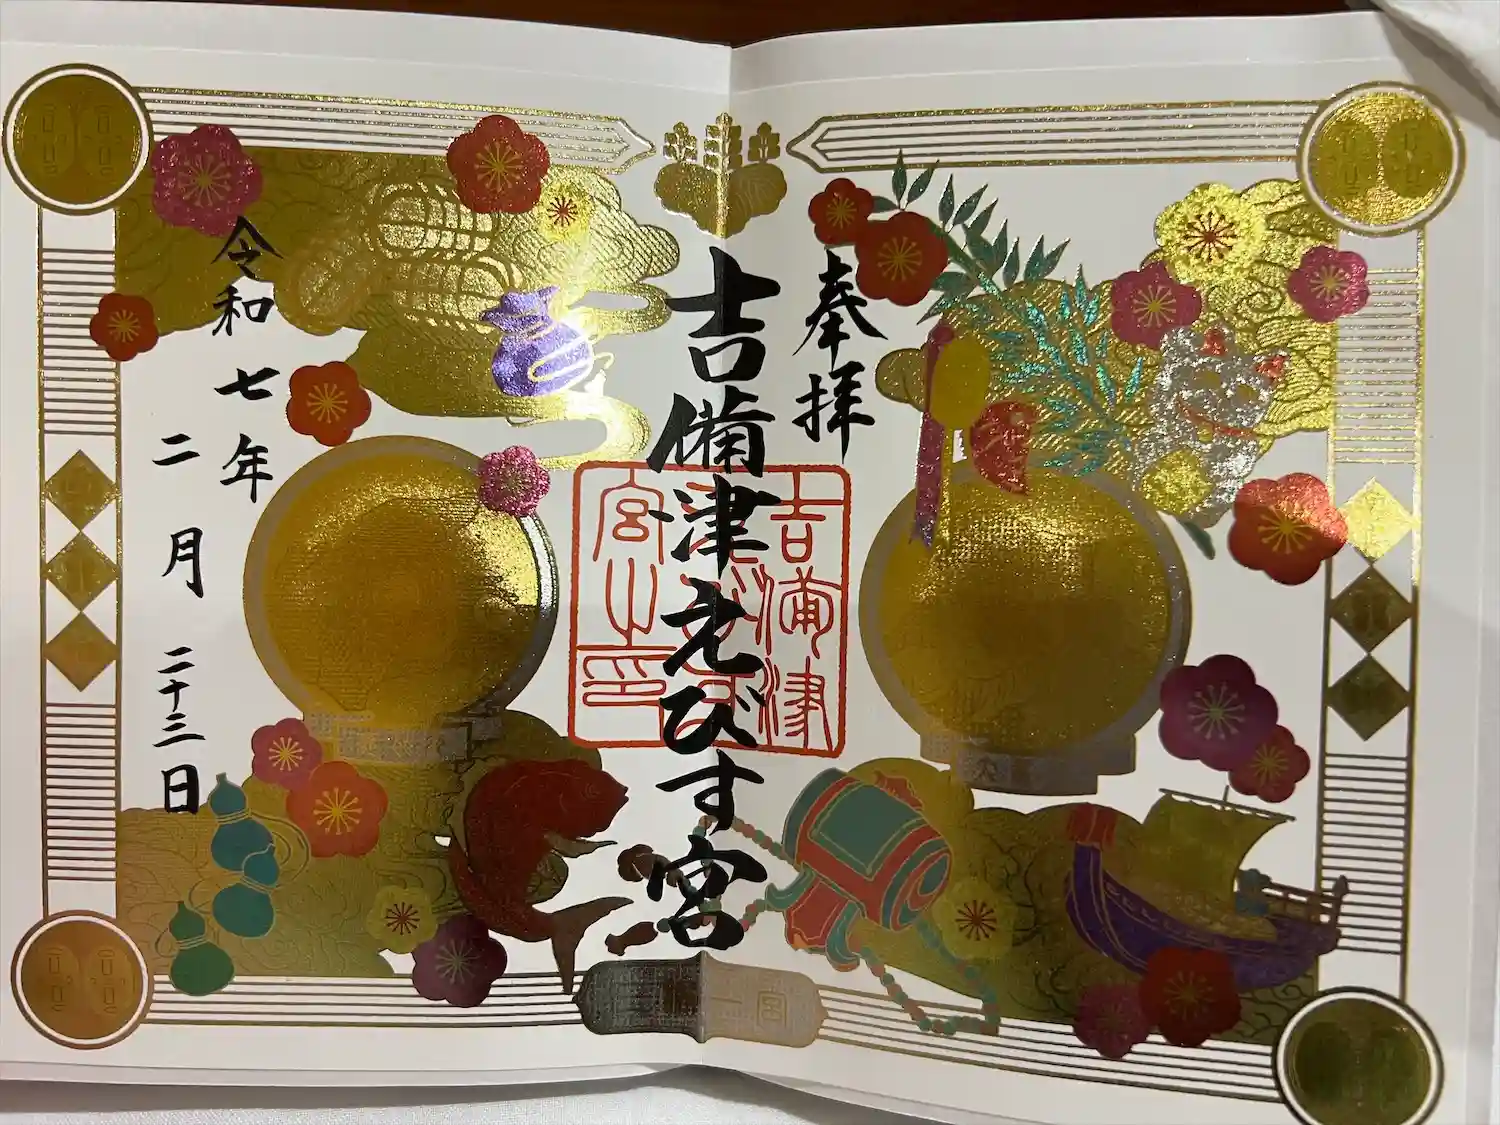 奉拝
吉備津えびす宮
令和七年
二月二十三日
吉備津
宮之印